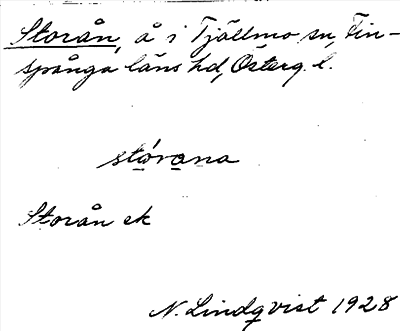 Storån, å i Tjällmo sn, Fin-
spånga läns hd, Österg. l.
stórana
Storån ek
N. Lindqvist 1928